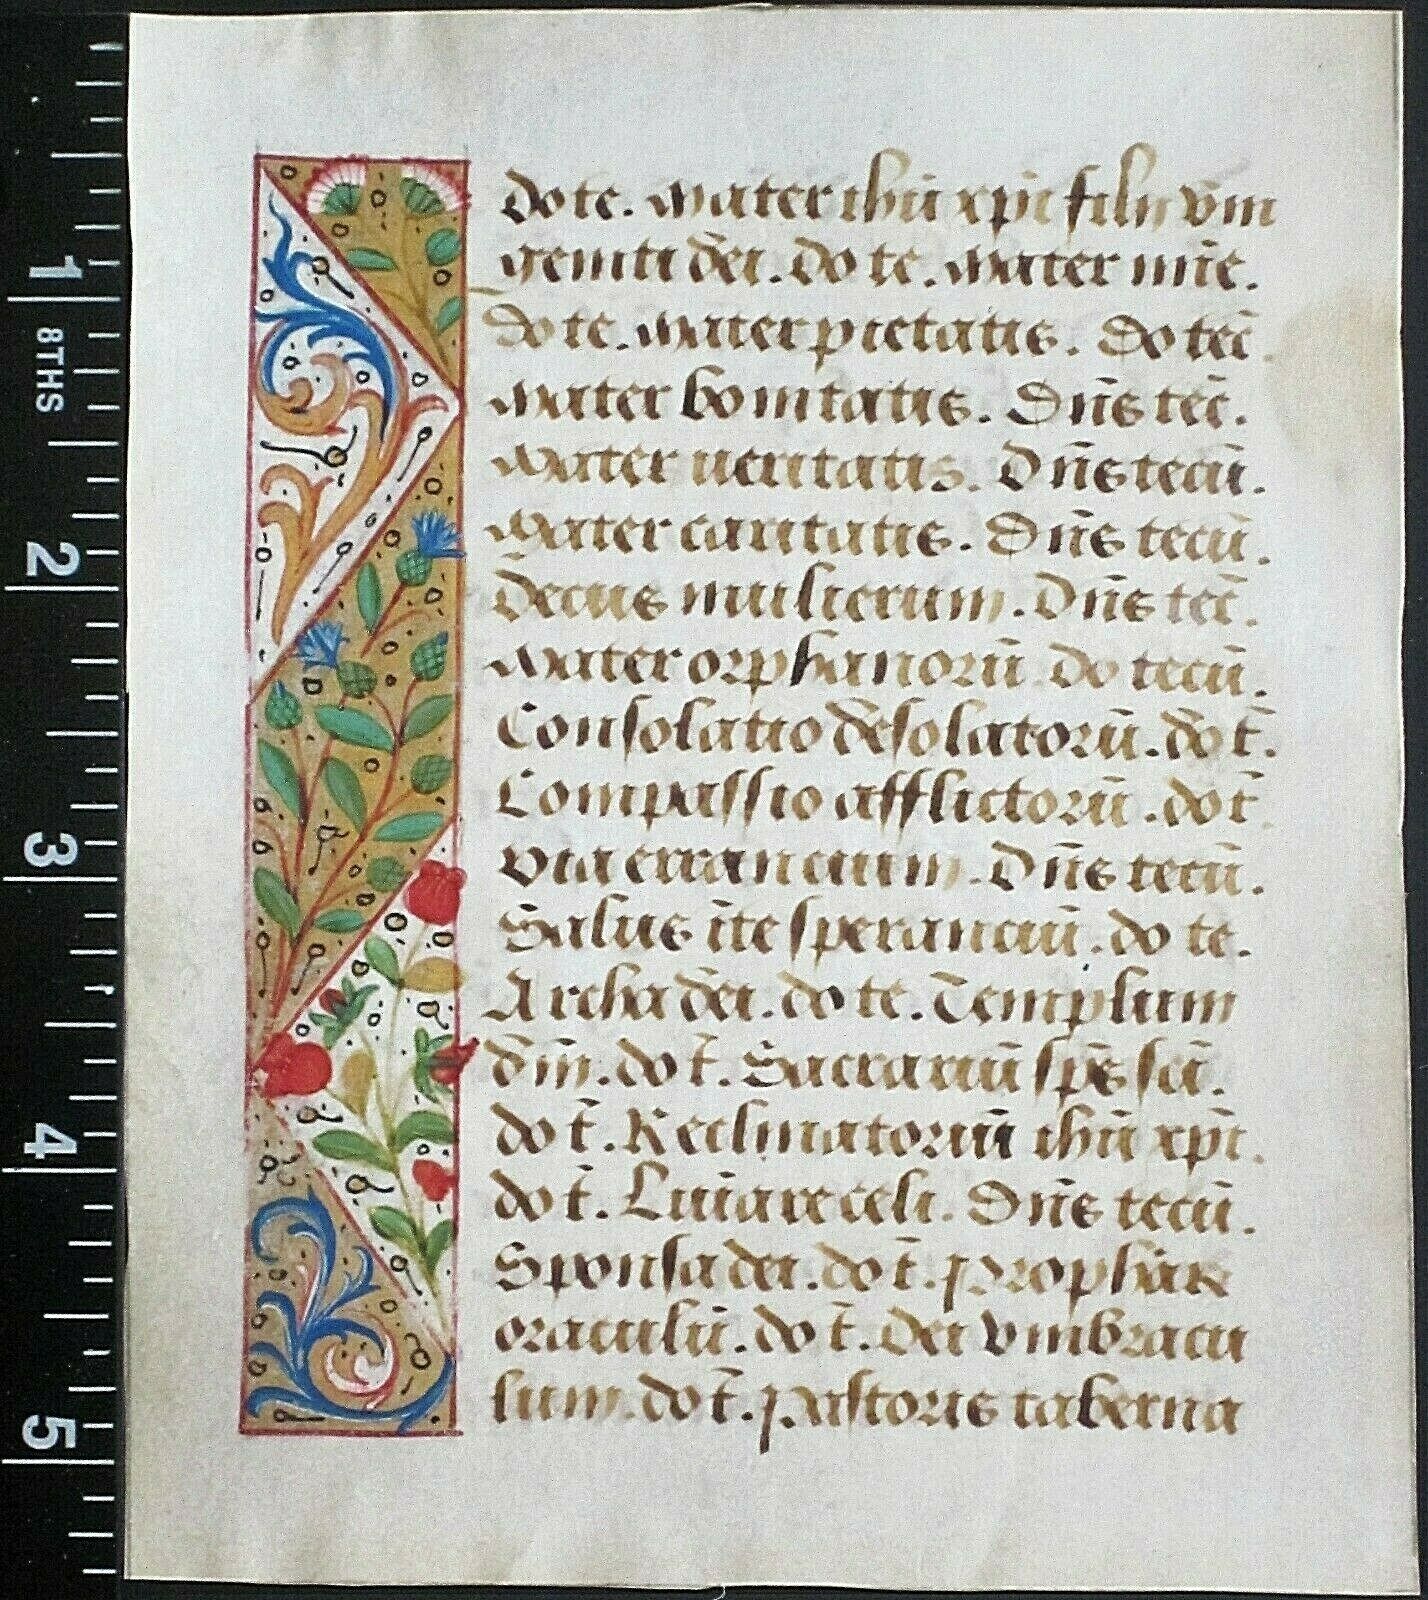 do te. Mater ihũ xp̃i filii vni
geniti dei. do te. Mater mie.
Do te. Mater pietatis. Do tec̃.
Mater bonitatis. Dñs tec̃.
Mater veritatis. Dñs tecũ.
Mater caritatis. Dñs tecũ.
Decus mulierum. Dñs tec̃.
Mater orphanorũ do tecũ.
Consolatio desolatorũ. do t̃.
Compassio afflictorũ. do t̃
Via errancium. Dñs tecũ.
Salus ĩ te speranciũ. do te.
Archa dei. do te. Templum
dñi. do t̃. Sacrariũ sp̃s sc̃i.
do t̃. Reclinatoriũ ihũ xp̃i.
do t̃. Luna celi. Dñs tecũ.
Sponsa dei. do t̃. Prophãꝝ
oraculũ. do t̃. Dei vmbracu
lum. do t̃. Pastoris taberna
8THS
1
2
3
4
5